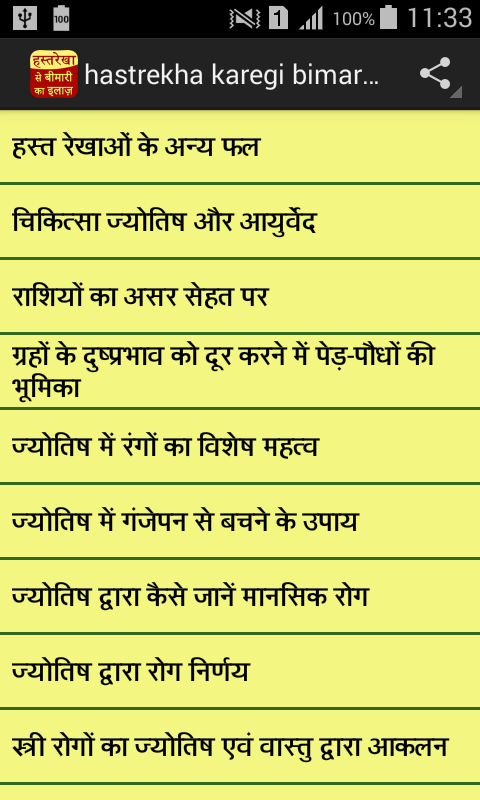 100 1 100% 11:33
हस्तरेखा
से बीमारी
का इलाज़
hastrekha karegi bimar...
हस्त रेखाओं के अन्य फल
चिकित्सा ज्योतिष और आयुर्वेद
राशियों का असर सेहत पर
ग्रहों के दुष्प्रभाव को दूर करने में पेड़-पौधों की
भूमिका
ज्योतिष में रंगों का विशेष महत्व
ज्योतिष में गंजेपन से बचने के उपाय
ज्योतिष द्वारा कैसे जानें मानसिक रोग
ज्योतिष द्वारा रोग निर्णय
स्त्री रोगों का ज्योतिष एवं वास्तु द्वारा आकलन